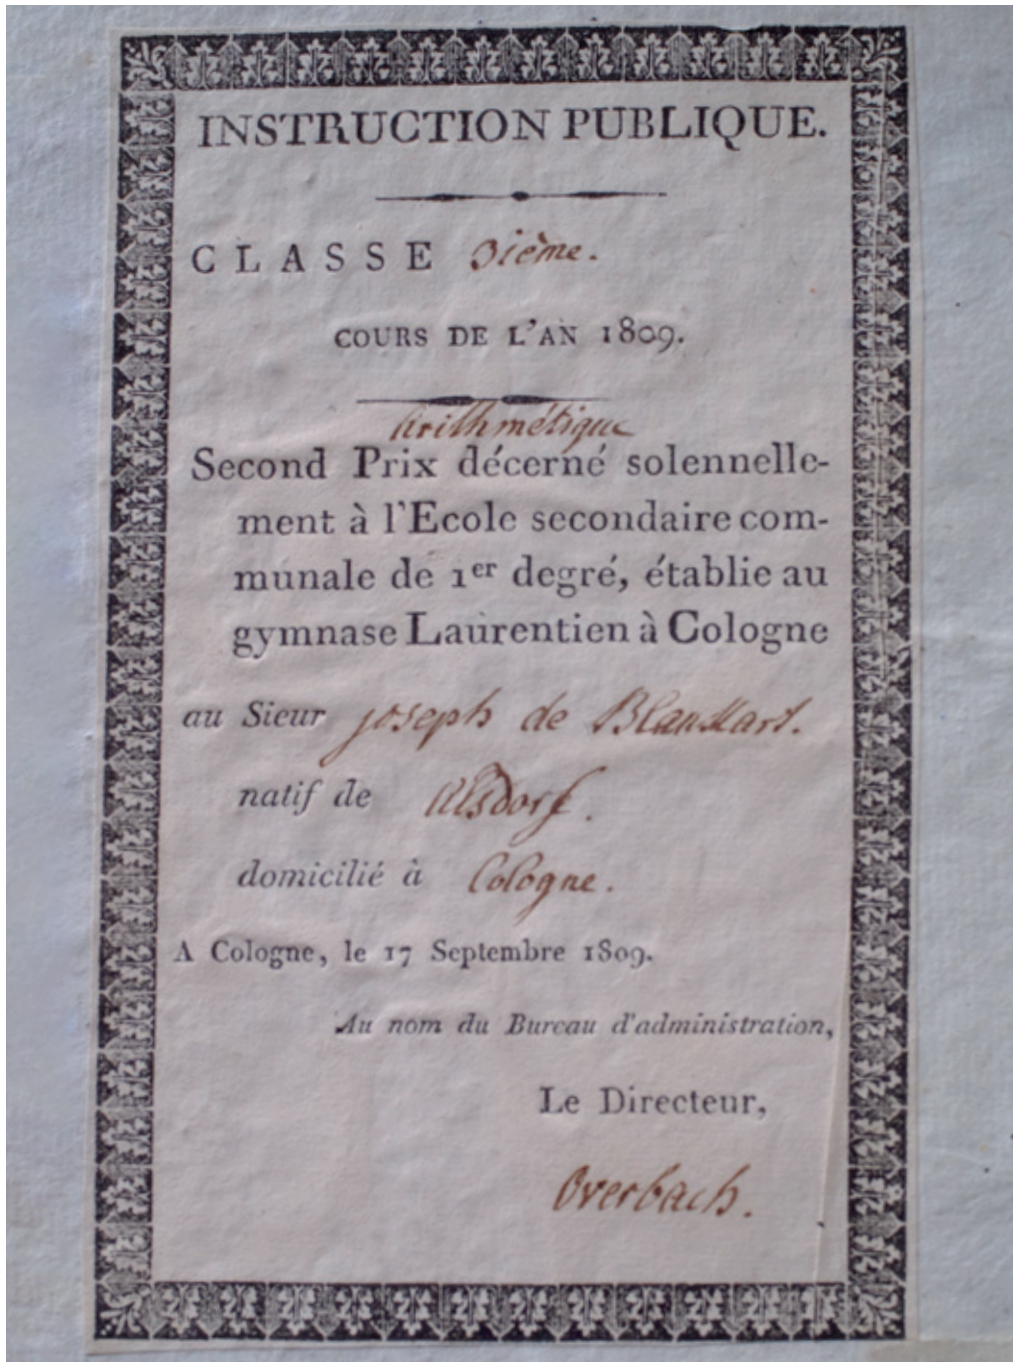 INSTRUCTION PUBLIQUE.
CLASSE 3ième.
COURS DE L'AN 1809.
Arithmétique
Second Prix décerné solennelle-
ment à l'Ecole secondaire com-
munale de 1er degré, établie au
gymnase Laurentien à Cologne
au Sieur joseph de Blanckart.
natif de Alsdorf.
domicilié à Cologne.
A Cologne, le 17 Septembre 1809.
Au nom du Bureau d'administration,
Le Directeur,
Overbach.